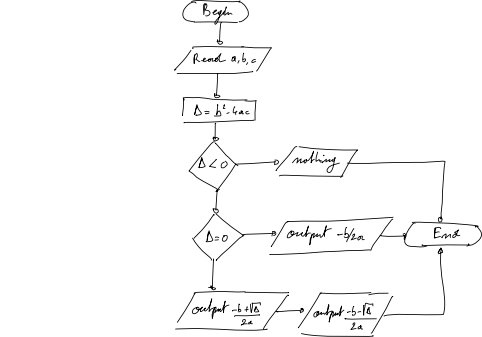 Begin
Read a,b,c
Δ = b² - 4ac
Δ < 0
nothing
Δ = 0
output -b/2a
End
output (-b+√Δ)/2a
output (-b-√Δ)/2a